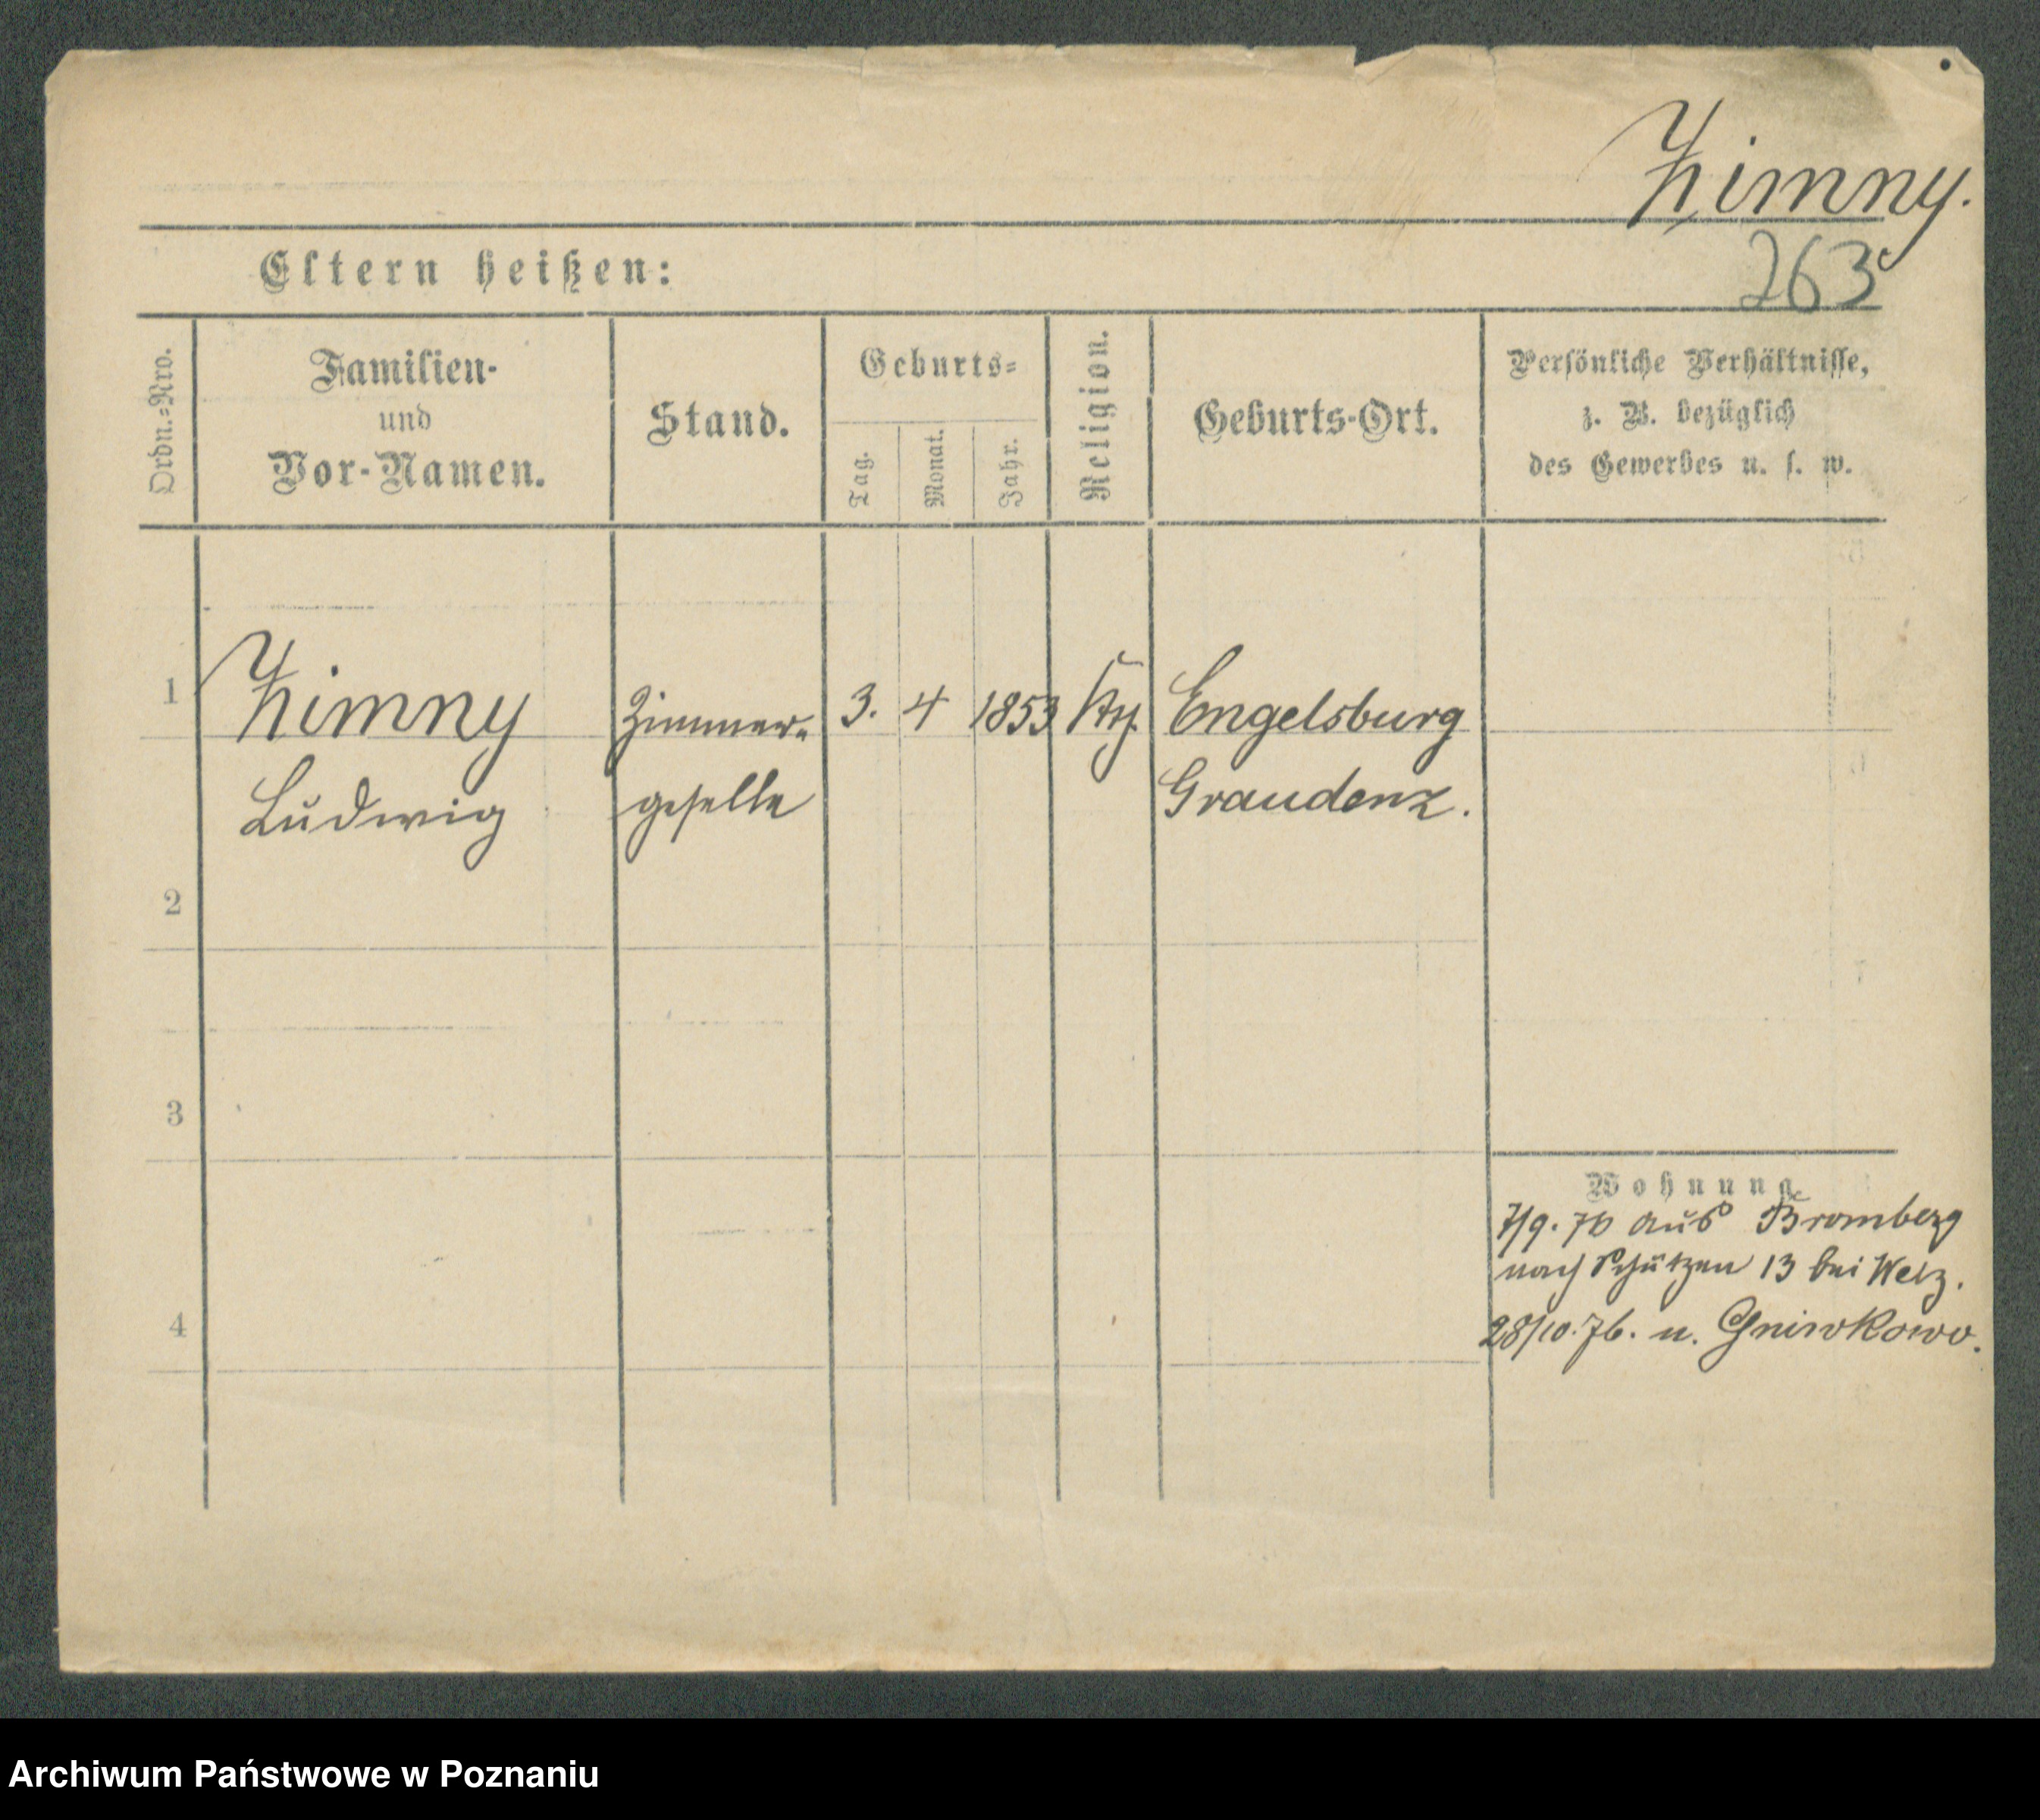 Zimny.
263
Eltern heißen:
Ordn.=Nro.
Familien-
und
Vor-Namen.
Stand.
Geburts=
Tag.
Monat.
Jahr.
Religion.
Geburts-Ort.
Persönliche Verhältnisse,
z. B. bezüglich
des Gewerbes u. s. w.
1 Zimny Zimmer- 3. 4 1853 Engelsburg
Ludwig geselle Graudenz.
2
3
Wohnung
7/9. 76 aus Bromberg
nach Schützen 13 bei Welz.
4
28/10. 76. n. Gniewkowo.
Archiwum Państwowe w Poznaniu